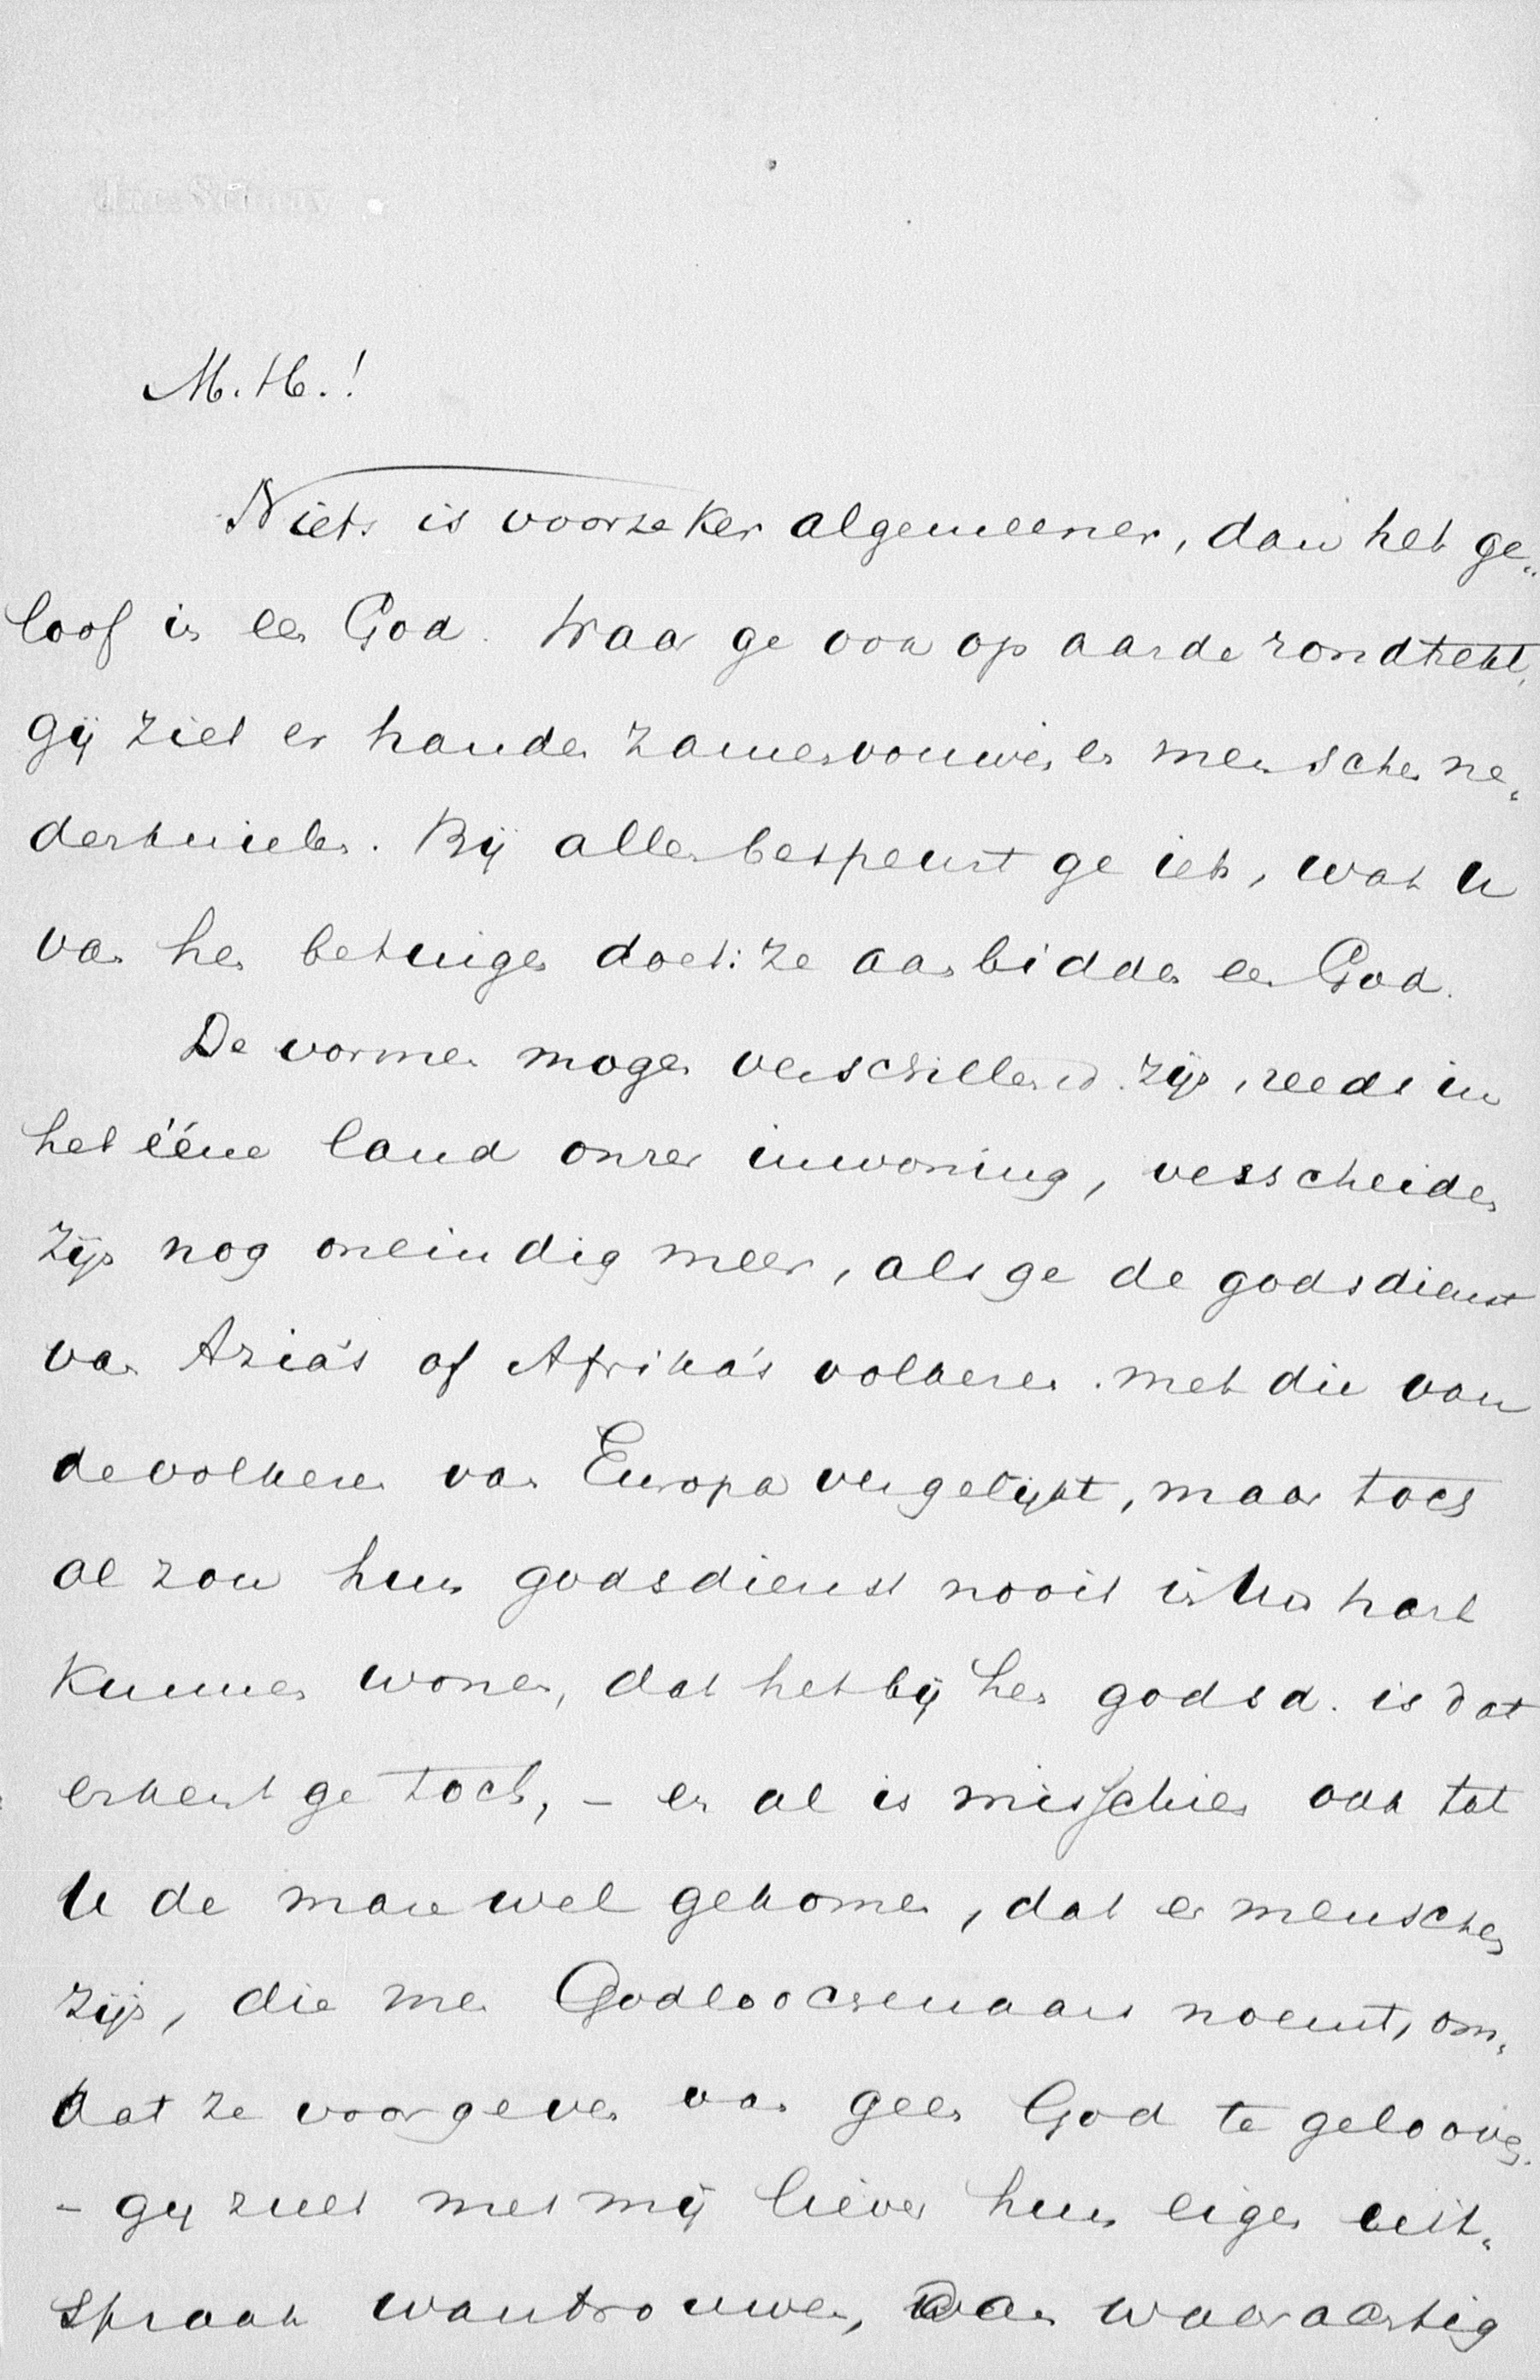 M. H.!
Niets is voorzeker algemeener, dan het ge„
loof in een God. Waar ge ook op aarde rondtrekt,
gij ziet er handen zamenvouwen, en menschen ne„
derknielen. Bij allen bespeurt ge iets, wat U
van hen betuigen doet: ze aanbidden een God.
De vormen mogen verschillend zijn, reeds in
het ééne land onzer inwoning, verscheiden
zijn nog oneindig meer, als ge de godsdienst
van Azia's of Afrika's volkeren met die van
de volkeren van Europa vergelijkt, maar toch
al zou hun godsdienst nooit in Uw hart
kunnen wonen, dat het bij hen godsd. is dat
erkent ge toch, – en al is misschien ook tot
U de mare wel gekomen, dat er menschen
zijn, die men Godloochenaars noemt, om„
dat ze voorgeven van geen God te gelooven.
– gij zult met mij liever hun eigen uit„
spraak wantrouwen, dan waarachtig